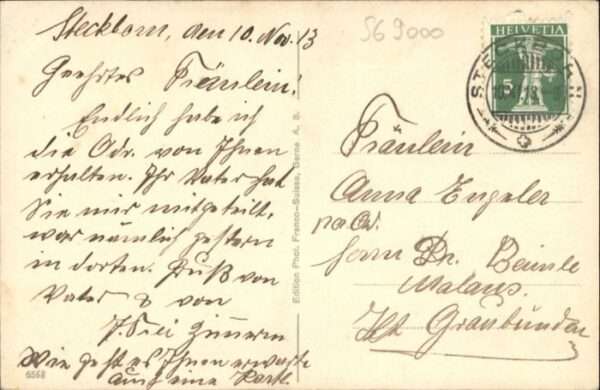 Steckborn, den 10. Nov. 13
Geehrtes Fräulein!
Endlich habe ich
die Adr. von Ihnen
erhalten. Ihr Vater hat
Sie mir mitgeteilt,
war nämlich gestern
in dorten. Gruß von
Vater & von
Wie geht es Ihnen erwarte
auch eine Karte.
6568
Edition Phot. Franco-Suisse, Berne A. B.
569000
HELVETIA
5
STECKBORN
Fräulein
Anna Engeler
Herrn Dr.
Malans.
Kt. Graubünden